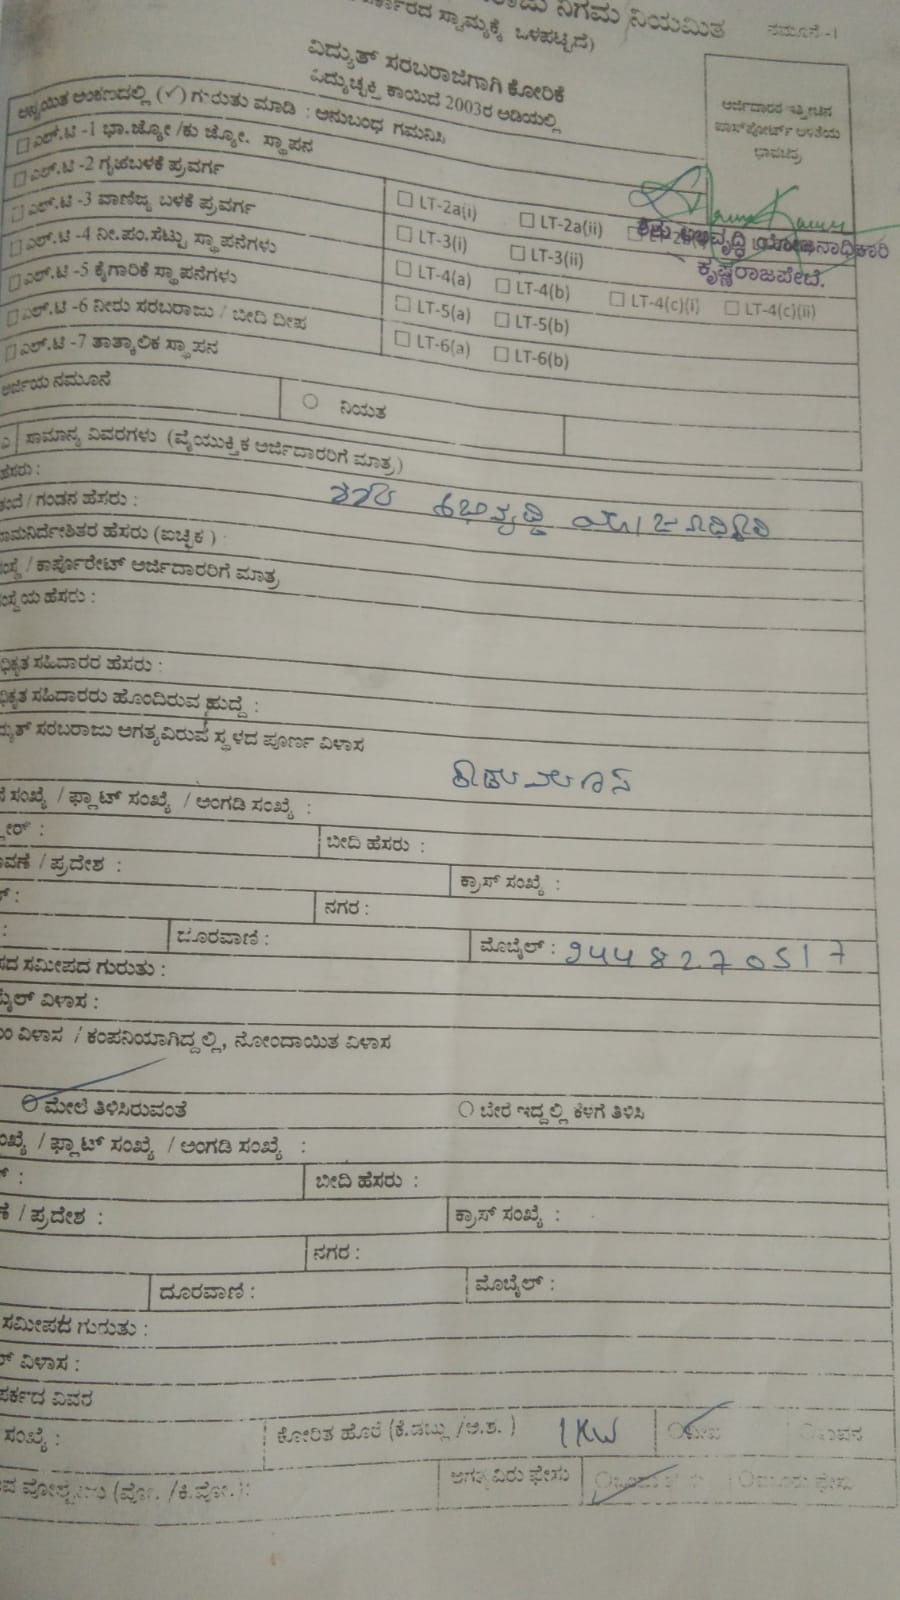 ನಿಗಮ ನಿಯಮಿತ
ನಮೂನೆ -1
ಸ್ವಾಮ್ಯಕ್ಕೆ ಒಳಪಟ್ಟಿದೆ)
ವಿದ್ಯುತ್ ಸರಬರಾಜಿಗಾಗಿ ಕೋರಿಕೆ
ವಿದ್ಯುಚ್ಛಕ್ತಿ ಕಾಯಿದೆ 2003ರ ಅಡಿಯಲ್ಲಿ
ಅರ್ಜಿದಾರರ ಇತ್ತೀಚಿನ
ಪಾಸ್‌ಪೋರ್ಟ್ ಅಳತೆಯ
ಭಾವಚಿತ್ರ
ಅನ್ವಯಿತ ಅಂಕಣದಲ್ಲಿ (✓) ಗುರುತು ಮಾಡಿ : ಅನುಬಂಧ ಗಮನಿಸಿ
☐ ಎಲ್.ಟಿ -1 ಭಾ.ಜ್ಯೋ /ಕು ಜ್ಯೋ. ಸ್ಥಾಪನ
☐ ಎಲ್.ಟಿ -2 ಗೃಹಬಳಕೆ ಪ್ರವರ್ಗ ☐ LT-2a(i) ☐ LT-2a(ii)
ಶಿಶು ಅಭಿವೃದ್ಧಿ ಯೋಜನಾಧಿಕಾರಿ
ಕೃಷ್ಣರಾಜಪೇಟೆ.
☐ ಎಲ್.ಟಿ -3 ವಾಣಿಜ್ಯ ಬಳಕೆ ಪ್ರವರ್ಗ ☐ LT-3(i) ☐ LT-3(ii)
☐ ಎಲ್.ಟಿ -4 ನೀ.ಪಂ.ಸೆಟ್ಟು ಸ್ಥಾಪನೆಗಳು ☐ LT-4(a) ☐ LT-4(b) ☐ LT-4(c)(i) ☐ LT-4(c)(ii)
☐ ಎಲ್.ಟಿ -5 ಕೈಗಾರಿಕೆ ಸ್ಥಾಪನೆಗಳು ☐ LT-5(a) ☐ LT-5(b)
☐ ಎಲ್.ಟಿ -6 ನೀರು ಸರಬರಾಜು / ಬೀದಿ ದೀಪ ☐ LT-6(a) ☐ LT-6(b)
☐ ಎಲ್.ಟಿ -7 ತಾತ್ಕಾಲಿಕ ಸ್ಥಾಪನ
ಅರ್ಜಿಯ ನಮೂನೆ ○ ನಿಯತ
ಎ ಸಾಮಾನ್ಯ ವಿವರಗಳು (ವೈಯುಕ್ತಿಕ ಅರ್ಜಿದಾರರಿಗೆ ಮಾತ್ರ)
ಹೆಸರು : ಶಿಶು ಅಭಿವೃದ್ಧಿ
/ ಗಂಡನ ಹೆಸರು :
ನಾಮನಿರ್ದೇಶಿತರ ಹೆಸರು (ಐಚ್ಛಿಕ) :
/ ಕಾರ್ಪೊರೇಟ್ ಅರ್ಜಿದಾರರಿಗೆ ಮಾತ್ರ
ಹೆಸರು :
ಸಹಿದಾರರ ಹೆಸರು :
ಸಹಿದಾರರು ಹೊಂದಿರುವ ಹುದ್ದೆ :
ಸರಬರಾಜು ಅಗತ್ಯವಿರುವ ಸ್ಥಳದ ಪೂರ್ಣ ವಿಳಾಸ
ಸಂಖ್ಯೆ / ಫ್ಲಾಟ್ ಸಂಖ್ಯೆ / ಅಂಗಡಿ ಸಂಖ್ಯೆ :
ಬೀದಿ ಹೆಸರು :
/ ಪ್ರದೇಶ : ಕ್ರಾಸ್ ಸಂಖ್ಯೆ :
ನಗರ :
ದೂರವಾಣಿ : ಮೊಬೈಲ್ : 9448270517
ಸಮೀಪದ ಗುರುತು :
ವಿಳಾಸ :
ವಿಳಾಸ / ಕಂಪನಿಯಾಗಿದ್ದಲ್ಲಿ, ನೋಂದಾಯಿತ ವಿಳಾಸ
○ ಮೇಲೆ ತಿಳಿಸಿರುವಂತೆ ○ ಬೇರೆ ಇದ್ದಲ್ಲಿ ಕೆಳಗೆ ತಿಳಿಸಿ
/ ಫ್ಲಾಟ್ ಸಂಖ್ಯೆ / ಅಂಗಡಿ ಸಂಖ್ಯೆ :
ಬೀದಿ ಹೆಸರು :
/ ಪ್ರದೇಶ : ಕ್ರಾಸ್ ಸಂಖ್ಯೆ :
ನಗರ :
ದೂರವಾಣಿ : ಮೊಬೈಲ್ :
ಸಮೀಪದ ಗುರುತು :
ವಿಳಾಸ :
ವಿವರ
ಸಂಖ್ಯೆ : ಕೋರಿತ ಹೊರೆ (ಕೆ.ಡಬ್ಲ್ಯು /ಅ.ಶ. ) 1KW
ಅಗತ್ಯವಿರು ಫೇಸು